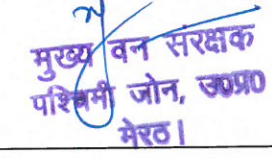 मुख्य वन संरक्षक
पश्चिमी जोन, उ०प्र०
मेरठ।